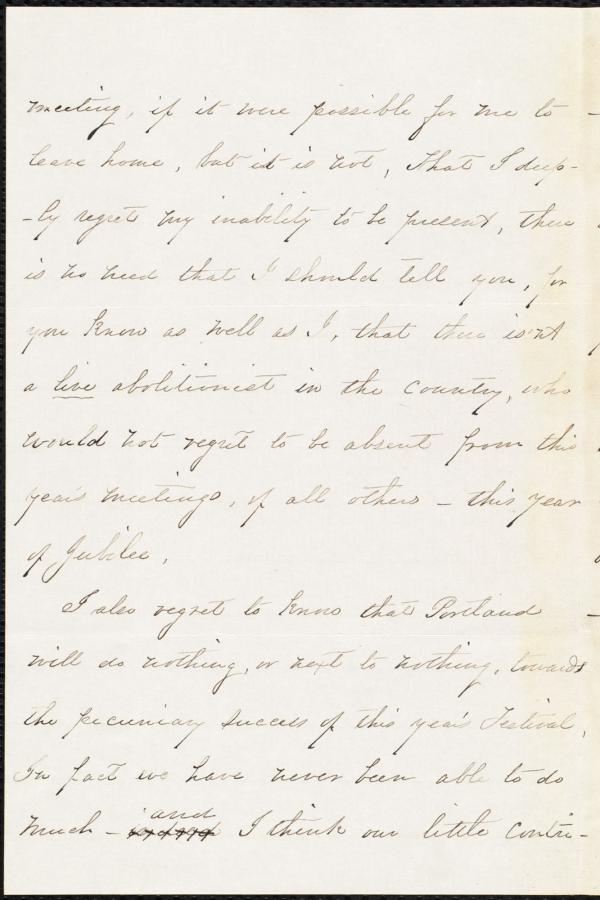 meeting, if it were possible for me to
leave home, but it is not, That I deep-
-ly regret my inability to be present, there
is no need that I should tell you, for
you know as well as I, that there is'nt
a live abolitionist in the country, who
would not regret to be absent from this
year's meetings, of all others - this year
of Jubilee,
I also regret to know that Portland
will do nothing, or next to nothing, towards
the pecuniary success of this year's Festival,
In fact we have never been able to do
much - and I think our little contri-